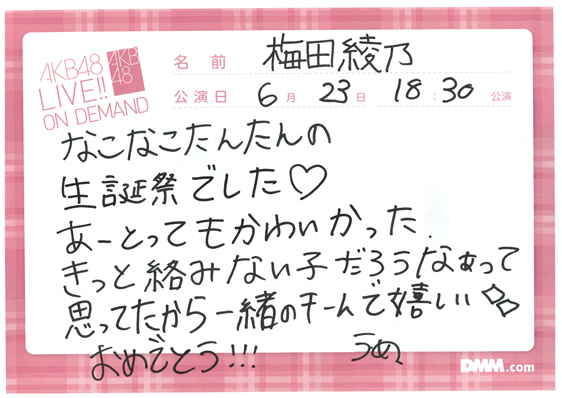 AKB48
LIVE!!
ON DEMAND
AKB
48
名前 梅田綾乃
公演日 6月 23日 18:30 公演
なこなこたんたんの
生誕祭でした♡
あーとってもかわいかった.
きっと絡みない子だろうなぁって
思ってたから一緒のチームで嬉しい
おめでとう!!! うめ、
DMM.com